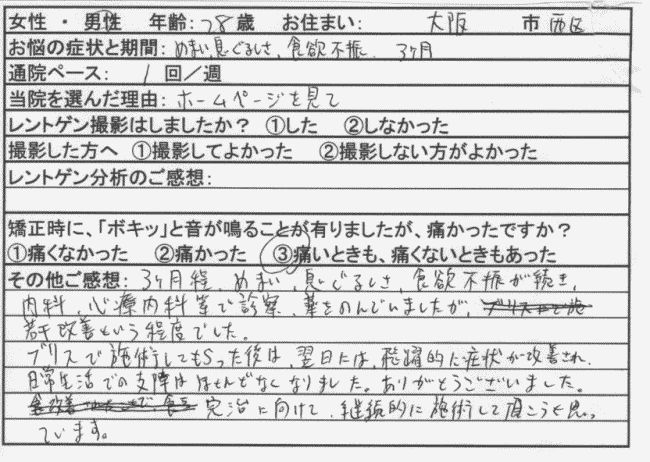 女性 ・ 男性 年齢: 28歳 お住まい: 大阪 市 西区
お悩の症状と期間: めまい、息ぐるしさ、食欲不振、 3ヶ月
通院ペース: 1 回／週
当院を選んだ理由: ホームページを見て
レントゲン撮影はしましたか？ ①した ②しなかった
撮影した方へ ①撮影してよかった ②撮影しない方がよかった
レントゲン分析のご感想:
矯正時に、「ボキッ」と音が鳴ることが有りましたが、痛かったですか？
①痛くなかった ②痛かった ③痛いときも、痛くないときもあった
その他ご感想: 3ヶ月程、めまい、息ぐるしさ、食欲不振が続き、
内科、心療内科等で診察、薬をのんでいましたが、
若干改善という程度でした。
ブリスで施術してもらった後は、翌日には、飛躍的に症状が改善され、
日常生活での支障はほとんどなくなりました。ありがとうございました。
完治に向けて、継続的に施術して頂こうと思っ
ています。